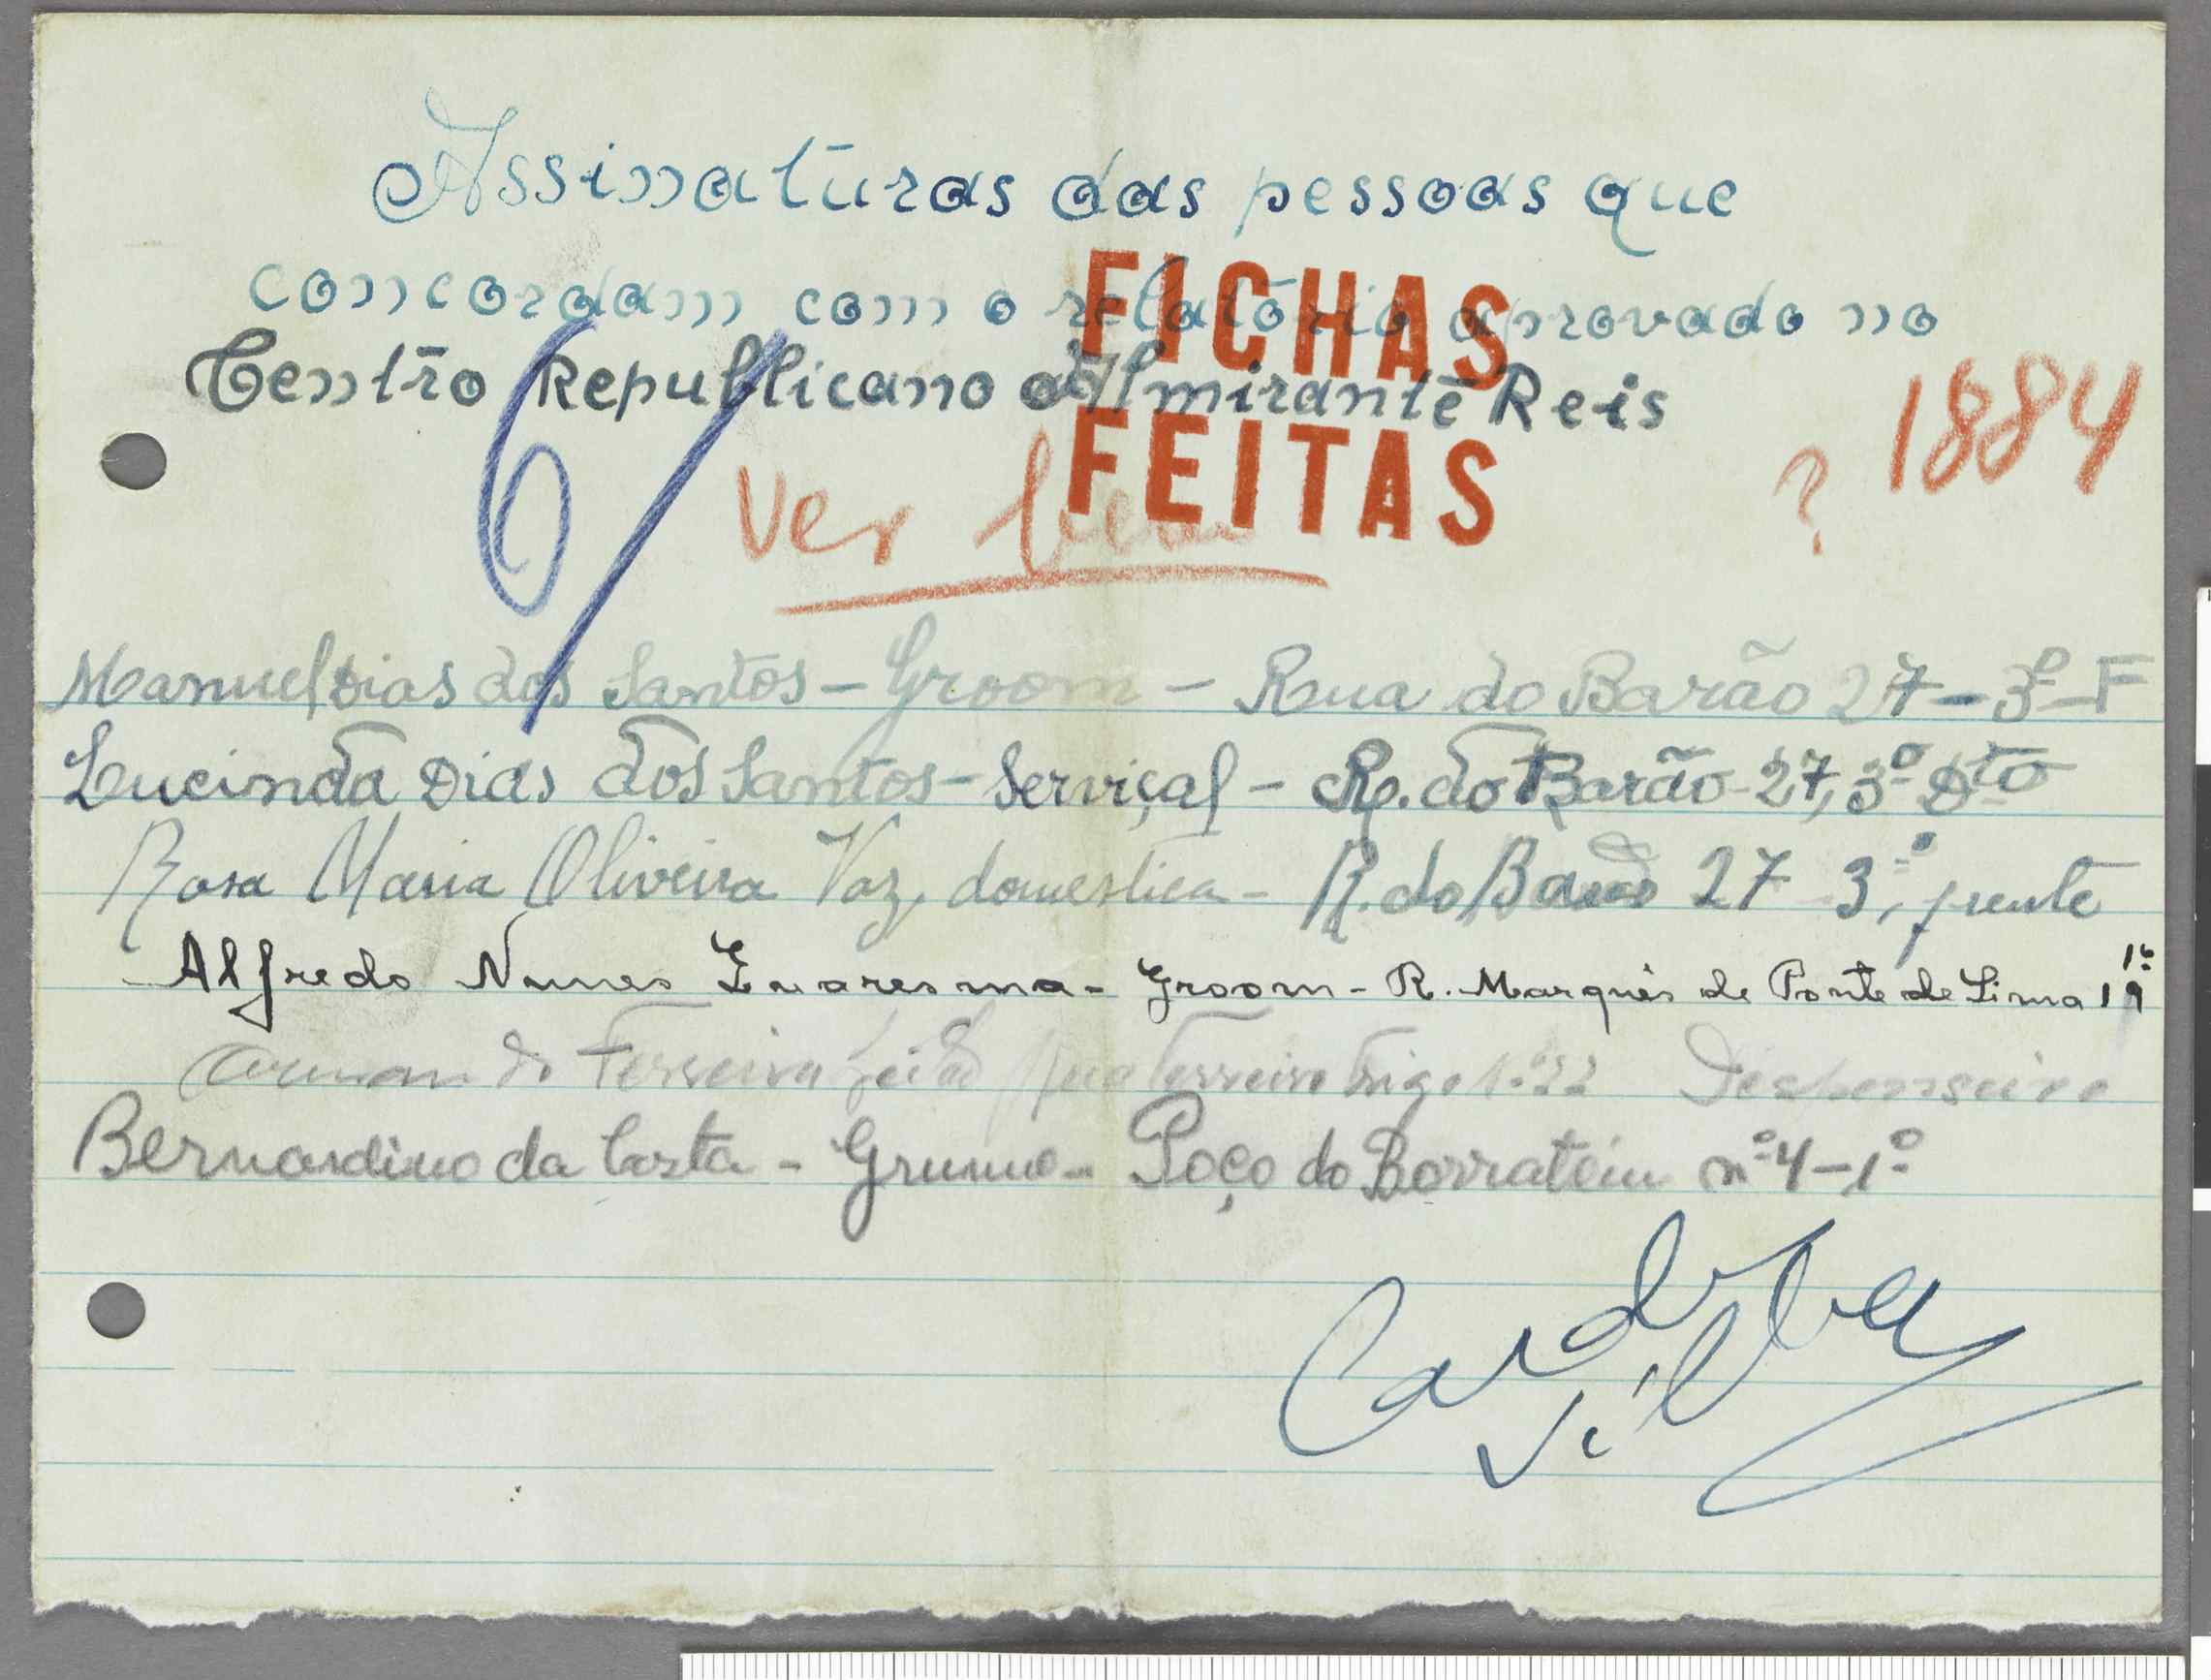 Assinaturas das pessoas que
concordam com o relatório aprovado no
Centro Republicano Almirante Reis
FICHAS
FEITAS
1884
?
6/
Ver bem
Manuel Dias dos Santos - Groom - Rua do Barão 27 - 3º - F
Lucinda Dias dos Santos - Serviçal - R. do Barão - 27, 3º Dto
Rosa Maria Oliveira Vaz, domestica - R. do Barão 27 - 3º, frente
Alfredo Nunes Quaresma - Groom - R. Marquês de Ponte de Lima 19 1º
Armando Ferreira Rua Terreiro Trigo Nº 22 Despenseiro
Bernardino da Costa - Grumo - Poço do Borratem nº 4 - 1º
Silva